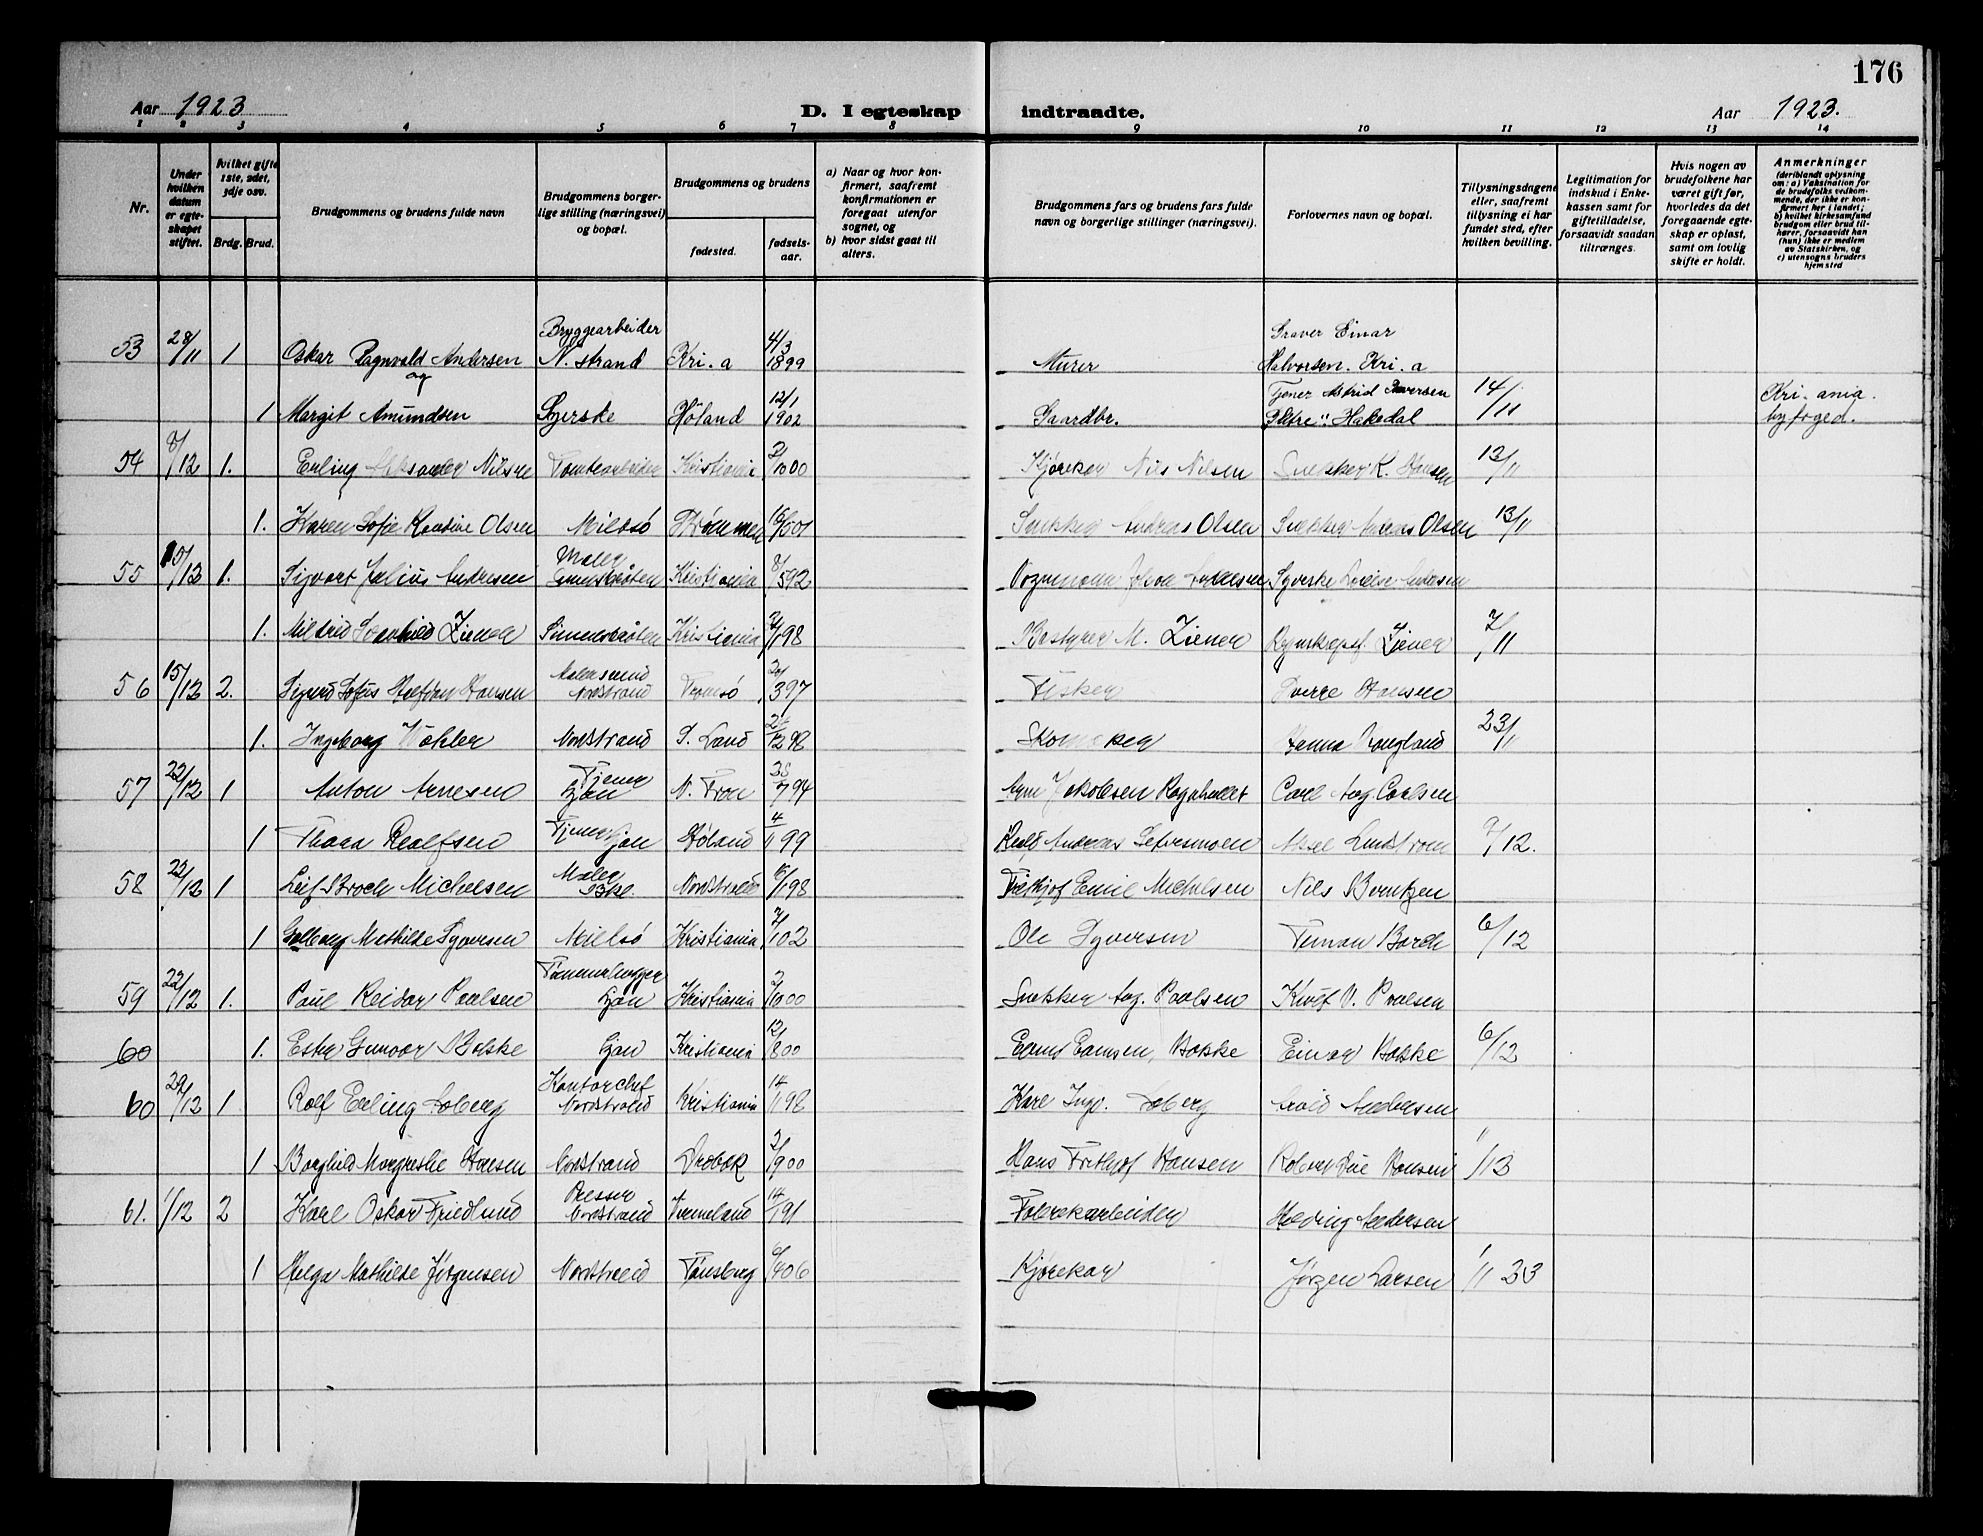 176
Aar 1923 D. I egteskap indtraadte. Aar 1923.
1 2 3 4 5 6 7 8 9 10 11 12 13 14
Nr.
Under hvilken datum er egteskapet stiftet.
Hvilket gifte 1ste, 2det, 3dje osv.
Brdg. Brud.
Brudgommens og brudens fulde navn
Brudgommens borgerlige stilling (næringsvei) og bopæl.
Brudgommens og brudens
fødested. fødselsaar.
a) Naar og hvor konfirmert, saafremt konfirmationen er foregaat utenfor sognet, og
b) hvor sidst gaat til alters.
Brudgommens fars og brudens fars fulde navn og borgerlige stillinger (næringsvei).
Forlovernes navn og bopæl.
Tillysningsdagene eller, saafremt tillysning ei har fundet sted, efter hvilken bevilling.
Legitimation for indskud i Enkekassen samt for giftetilladelse, forsaavidt saadan tiltrænges.
Hvis nogen av brudefolkene har været gift før, hvorledes da det foregaaende egteskap er opløst, samt om lovlig skifte er holdt.
Anmerkninger (deriblandt oplysning om: a) Vaksination for de brudefolks vedkommende, der ikke er konfirmert her i landet; b) hvilket kirkesamfund brudgom eller brud tilhører, forsaavidt han (hun) ikke er medlem av Statskirken, og c) utensogns bruders hjemsted
53 28/11 1 Oskar Ragnvald Andersen Bryggearbeider N. strand Kri.a 4/3 1899 Murer Graver Einar Halvorsen. Kri.a
og
1 Margit Amundsen Syerske Høland 12/1 1902 Gaardbr. Tjener Astrid Hakedal 14/11 Kri.ania byfoged.
54 8/12 1. Erling Nilsen Tomtearbeider Kristiania 00 Kjørekar Nils Nilsen Snekker K. Hansen 13/11
1. Karen Sofie Olsen Mildsø Strømmen 01 Snekker Andreas Olsen Snekker Andreas Olsen 13/11
55 15/12 1. Sigvart Julius Andresen Maler Simensbråten Kristiania 92 Vognmann Johan Syerske Louise Andersen
1. Mildrid Ziener Simensbråten Kristiania 98 Bestyrer M. Ziener Ziener 7/11
56 15/12 2. Sigurd Hansen Nordstrand Tromsø 97 Fisker Sverre Hansen
1. Ingeborg Køhler Nordstrand S. Land 98 Hanna Rongland 23/11
57 22/12 1 Anton Arnesen Tjener Ljan N. Fron 94 Arne Jakobsen Carl Aug. Carlsen
1 Thora Rolfsen Tjener Ljan Høland 4/11 99 Rolf Andreas Setersmoen Aksel Lindstrom 12.
58 22/12 1 Leif Broch Michelsen Maler Nordstrand 98 Fritjof Emil Michelsen Nils Berntzen
1 Solborg Mathilde Syversen Mildsø Kristiania 02 Ole Syversen Borch 6/12
59 22/12 1. Paul Reidar Paulsen Tømmerhugger Ljan Kristiania 00 Snekker Aug. Paulsen V. Paulsen
60 1. Ester Gunvor Bakke Ljan Kristiania 12/8 00 Bakke Einar Bakke 6/12
60 29/12 1. Rolf Erling Soberg Kontorchef Nordstrand Kristiania 14/11 98 Karl Ingv. Soberg Andersen
1 Borghild Margrethe Hansen Nordstrand Drøbak 2/9 00 Hans Frithjof Hansen Robert Due Hansen 11/12
61. 1/12 2 Karl Oskar Friedlund Presser Nordstrand Vermeland 14/1 91 Fabrekarbeider Andersen
1 Helga Mathilde Jörgensen Nordstrand Tønsberg 6/4 06 Kjørekar Jørgen Larsen 1/11 23